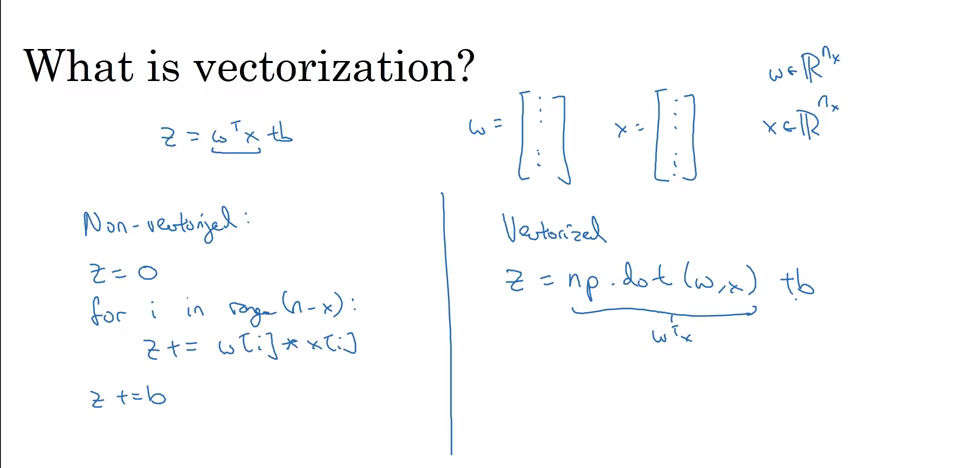 What is vectorization?
z = wᵀx + b
w = [⋮ ⋮] x = [⋮ ⋮]
w ∈ ℝⁿˣ
x ∈ ℝⁿˣ
Non-vectorized:
z = 0
for i in range(n-x):
z += w[i] * x[i]
z += b
Vectorized
z = np.dot(w,x) + b
wᵀx